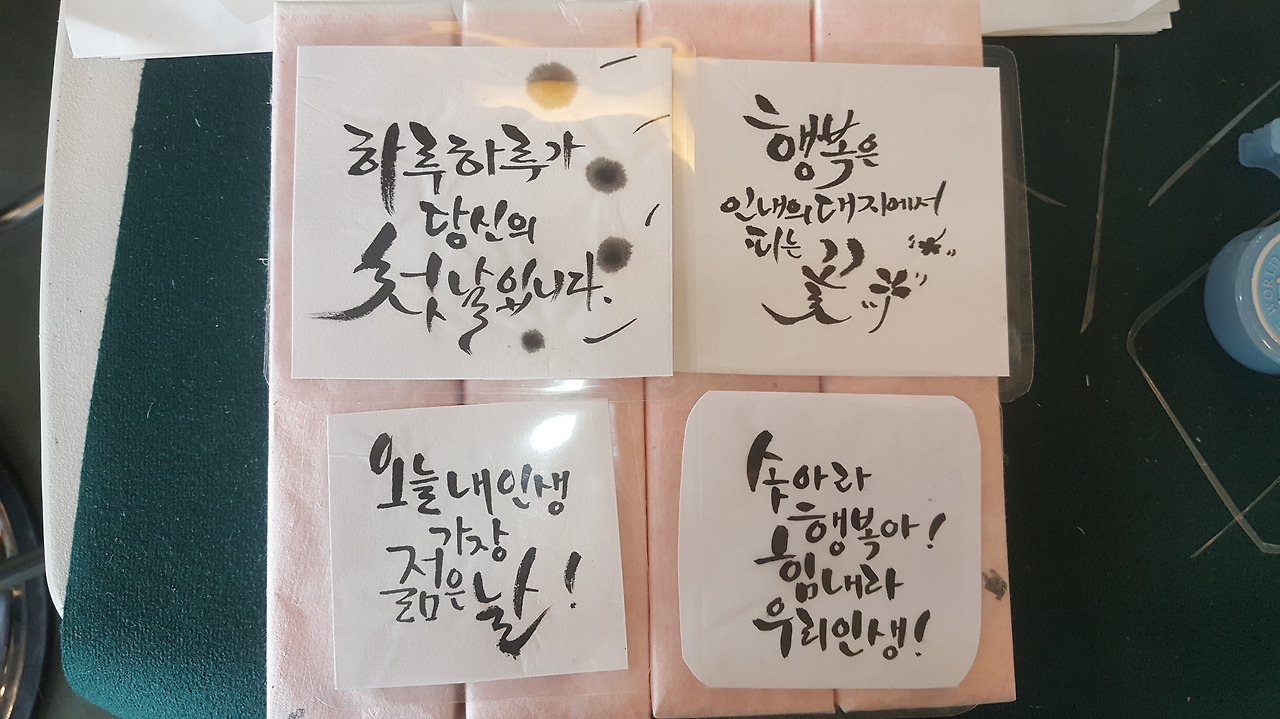 하루하루가
당신의
첫날입니다.
행복은
인내의 대지에서
피는 꽃
오늘 내 인생
가장
젊은 날!
솟아라
행복아!
힘내라
우리인생!
WORLD